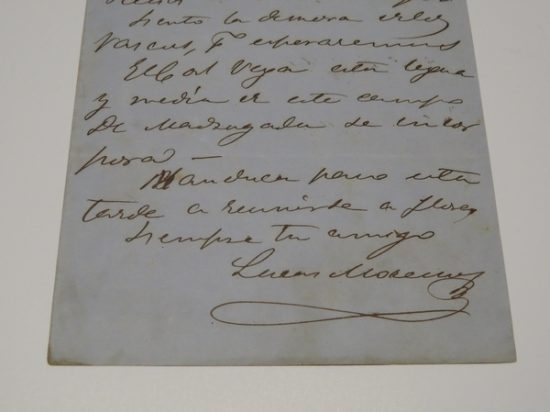 siento la demora de los
Vascos, y esperaremos
El Cnl Vega esta legua
y media de este campo
De Madrugada se incor
pora —
Manduca para esta
tarde a reunirse a Flores
Siempre tu amigo
Lucas Moreno